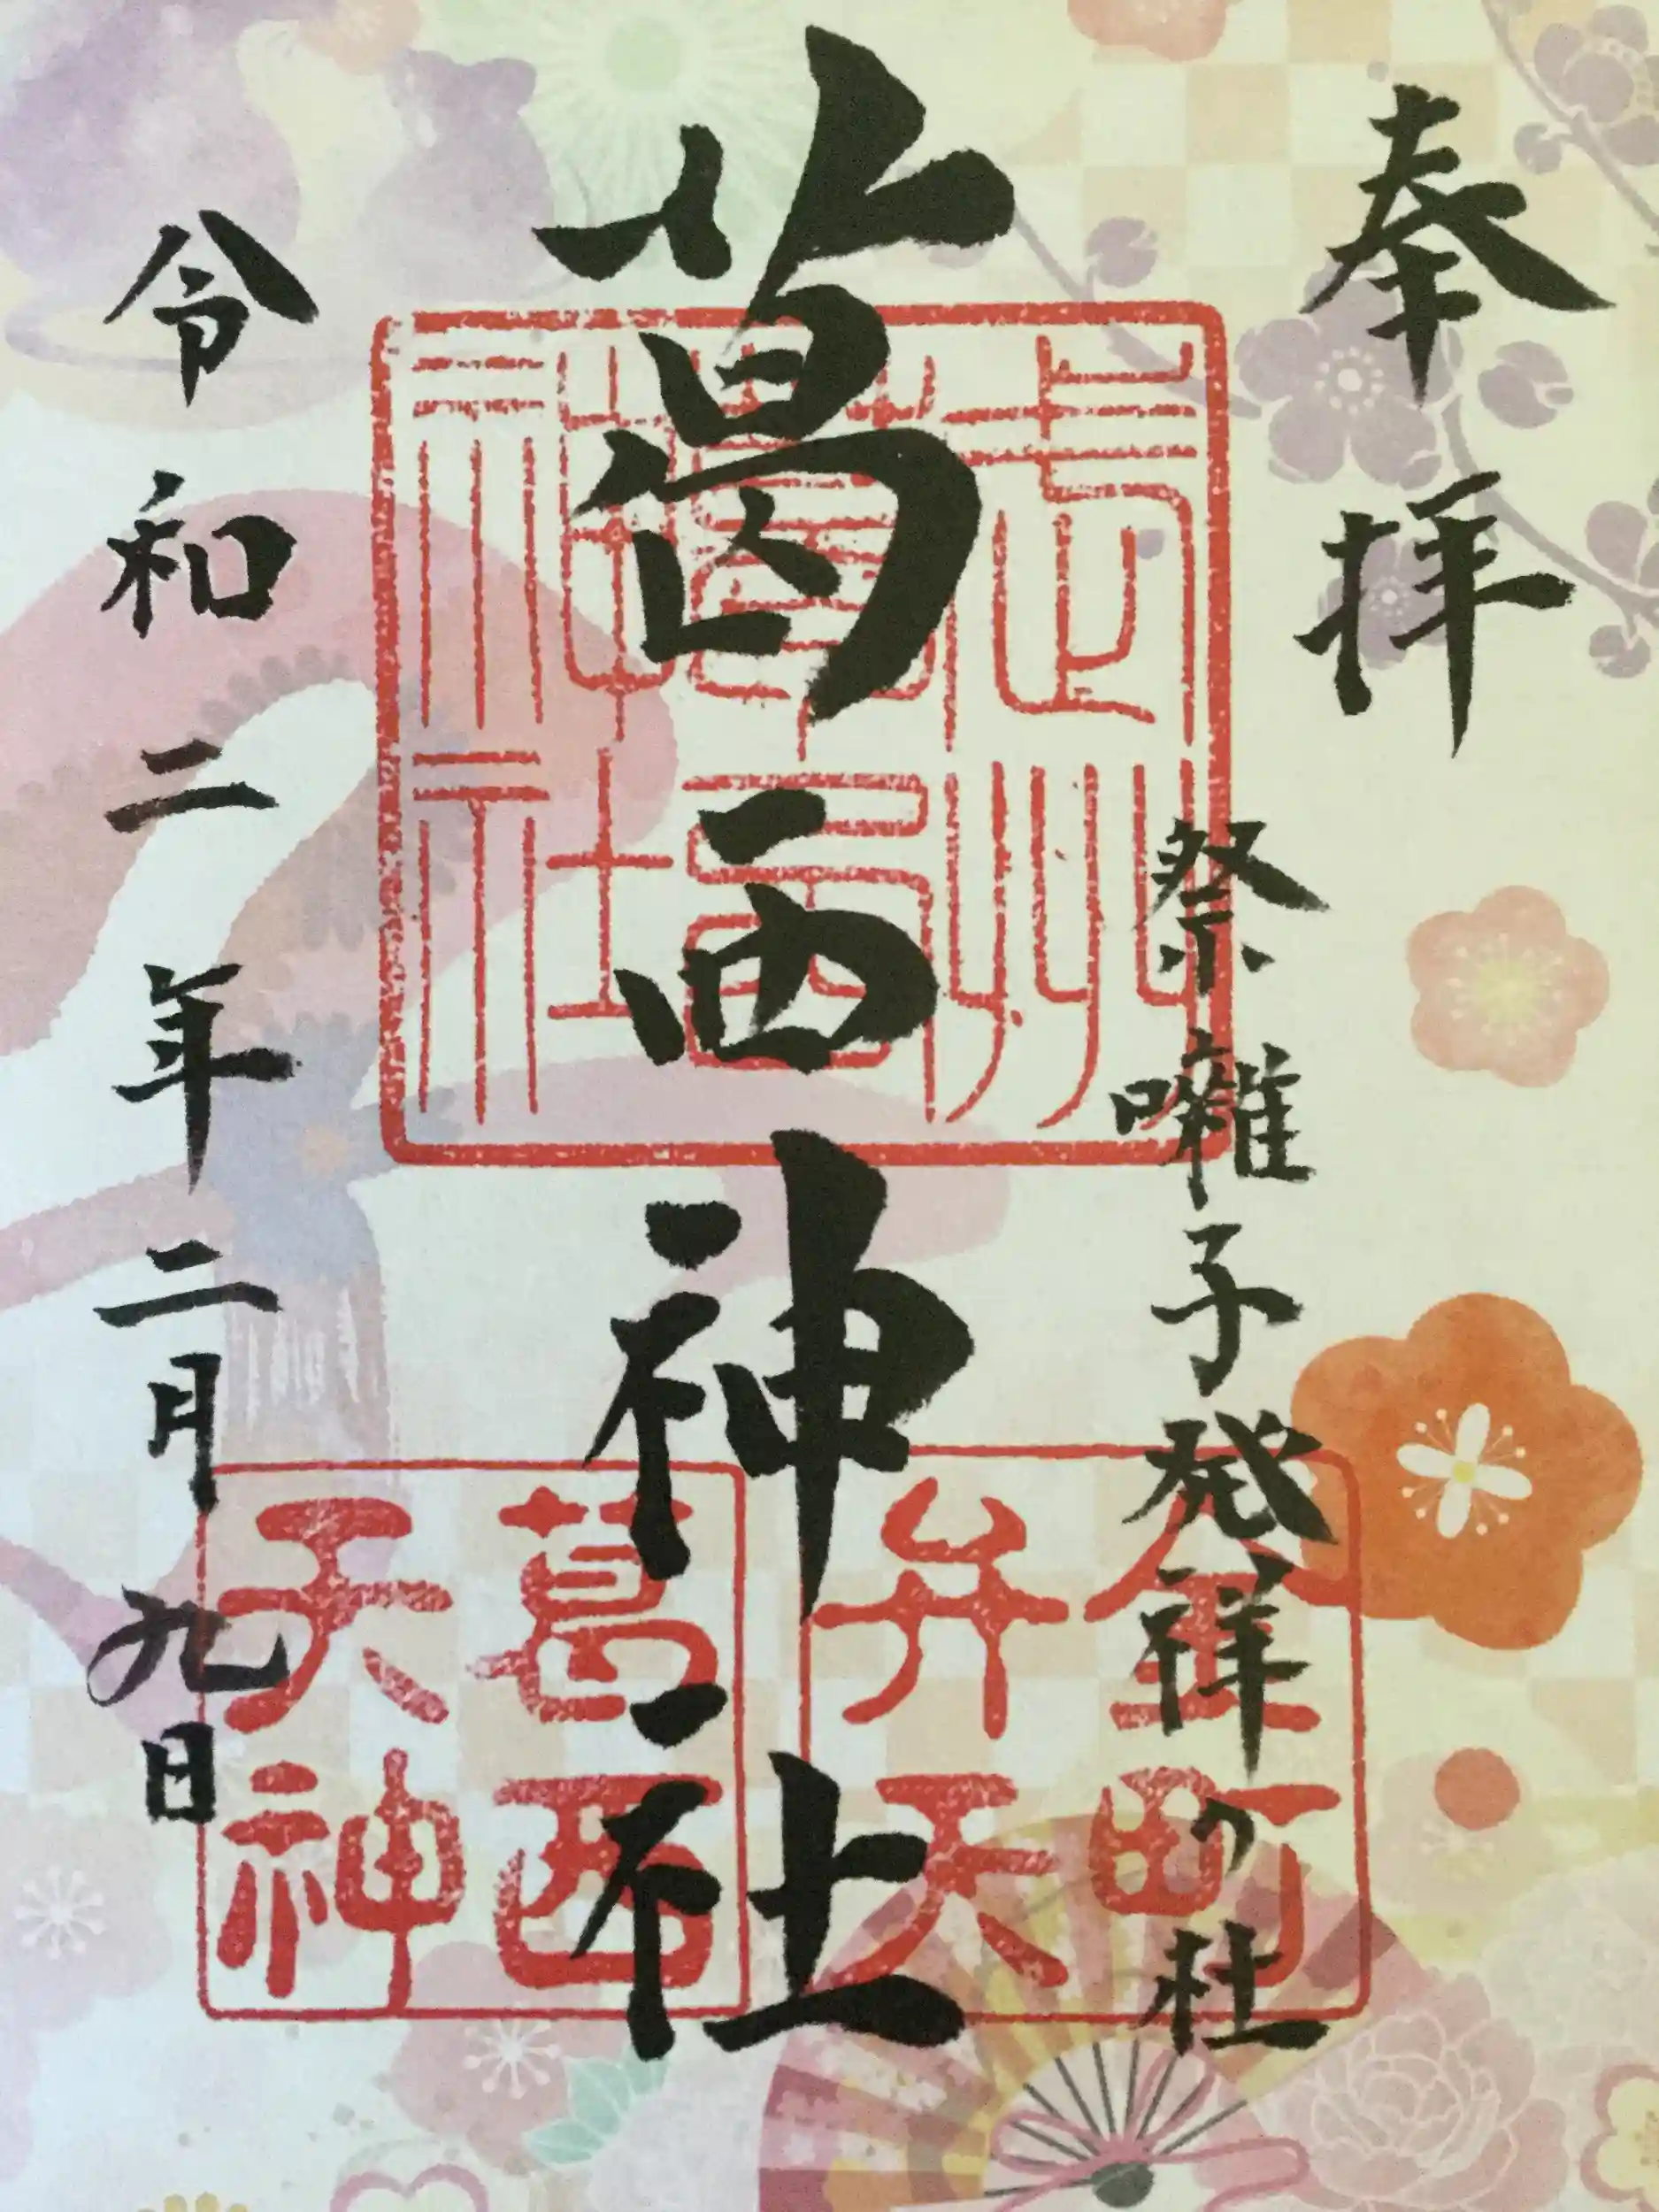 奉拝
祭囃子発祥の社
葛西神社
令和二年二月九日
葛西神社
金町弁天
葛西天神